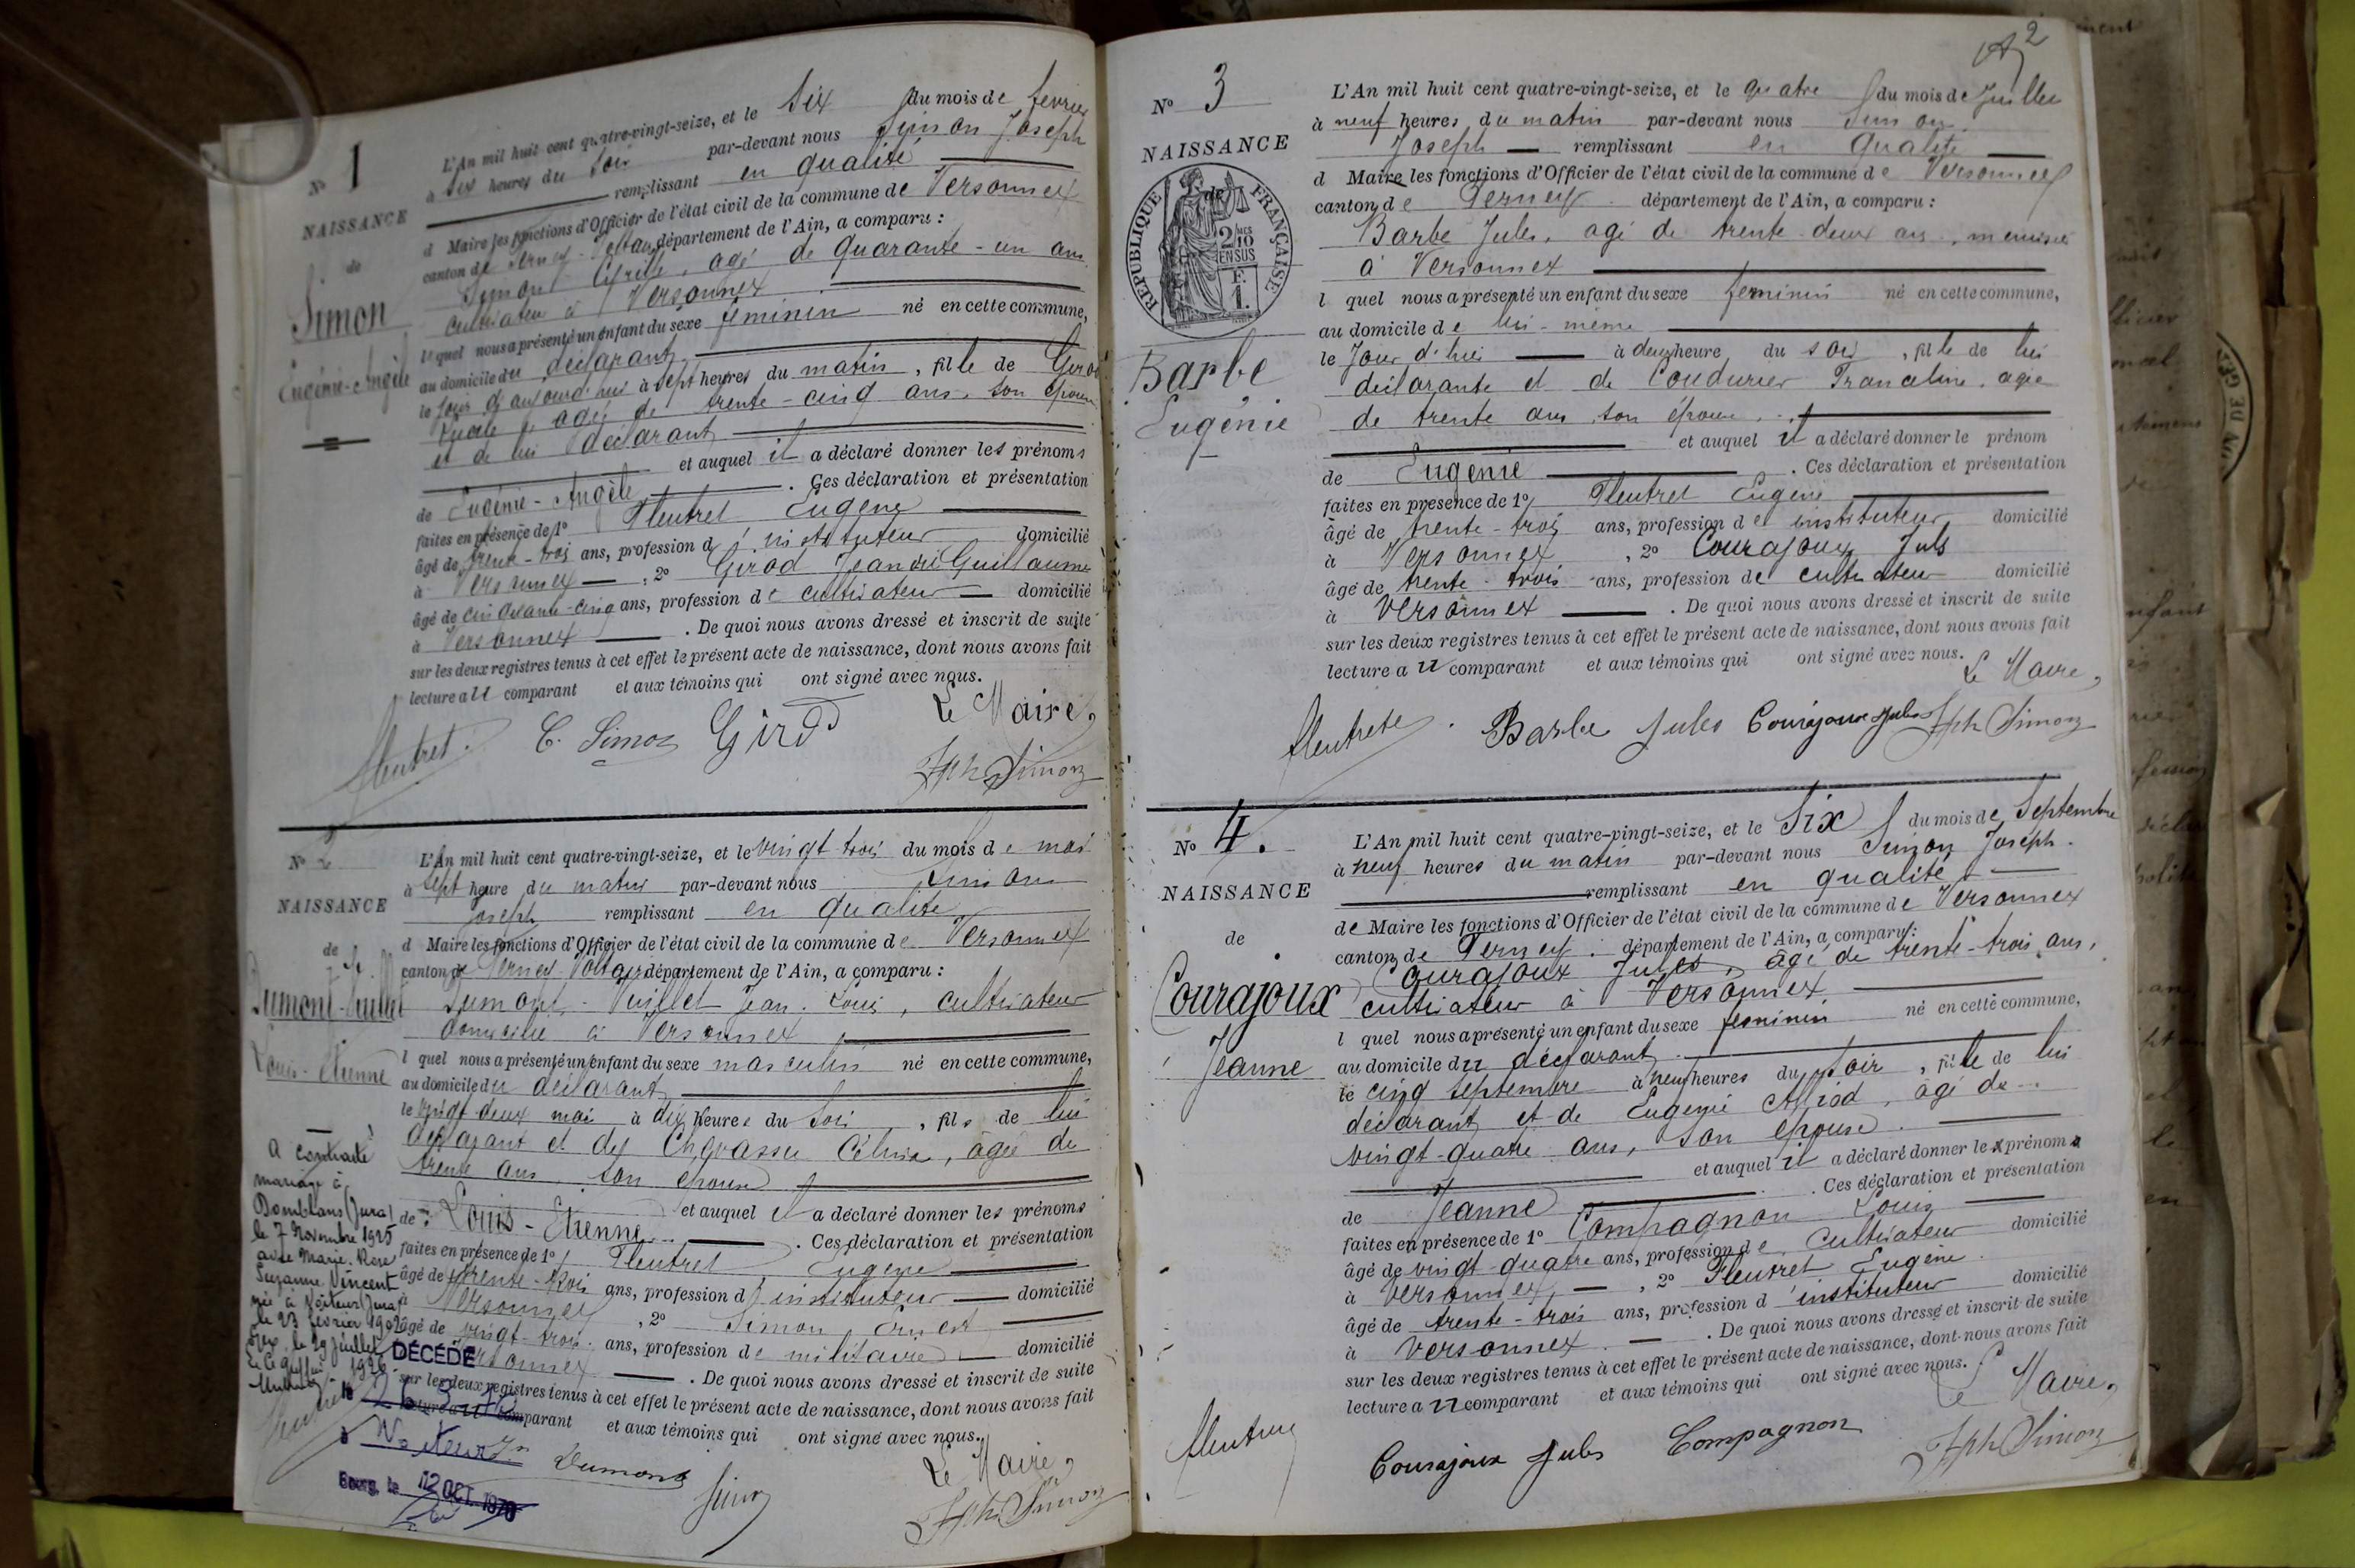 N° 1
NAISSANCE
de
Simon
Eugénie-Angèle
L'An mil huit cent quatre-vingt-seize, et le Six du mois de fevrier
à six heures du soir par-devant nous Simon Joseph
remplissant en qualité
d Maire les fonctions d'Officier de l'état civil de la commune de Versonnex
canton de Ferney-Voltaire département de l'Ain, a comparu :
Simon agé de quarante-un ans
cultivateur à Versonnex
lequel nous a présenté un enfant du sexe féminin né en cette commune,
au domicile du déclarant
le jour d'aujourd'hui à sept heures du matin, fille de Girod
agée de trente-cinq ans, son épouse
et de lui déclarant
et auquel il a déclaré donner les prénoms
de Eugénie-Angèle. Ces déclaration et présentation
faites en présence de 1° Fleutret Eugène
âgé de trente-trois ans, profession d'instituteur domicilié
à Versonnex, 2° Girod Guillaume
âgé de cinquante-cinq ans, profession de cultivateur domicilié
à Versonnex. De quoi nous avons dressé et inscrit de suite
sur les deux registres tenus à cet effet le présent acte de naissance, dont nous avons fait
lecture au comparant et aux témoins qui ont signé avec nous.
Le Maire,
Fleutret. C. Simon Girod
Jph Simon
N° 2
NAISSANCE
de
Dumont-Vuillet
Louis-Etienne
L'An mil huit cent quatre-vingt-seize, et le vingt trois du mois de mai
à sept heure du matin par-devant nous Simon
Joseph remplissant en qualité
d Maire les fonctions d'Officier de l'état civil de la commune de Versonnex
canton de Ferney-Voltaire département de l'Ain, a comparu :
Dumont-Vuillet Jean-Louis, cultivateur
domicilié à Versonnex
l quel nous a présenté un enfant du sexe masculin né en cette commune,
au domicile du déclarant
le vingt-deux mai à dix heures du soir, fils de lui
déclarant et de âgée de
trente ans son épouse
et auquel il a déclaré donner les prénoms
de Louis-Etienne. Ces déclaration et présentation
faites en présence de 1° Fleutret Eugène
âgé de trente-trois ans, profession d'instituteur domicilié
à Versonnex, 2° Simon Ernest
âgé de vingt-trois ans, profession de militaire domicilié
à Versonnex. De quoi nous avons dressé et inscrit de suite
sur les deux registres tenus à cet effet le présent acte de naissance, dont nous avons fait
lecture au comparant et aux témoins qui ont signé avec nous.
Le Maire,
Dumont Simon
Jph Simon
A contracté
mariage à
Domblans (Jura)
le 7 Novembre 1925
avec Marie-Rose
Suzanne Vincent
née à Voiteur (Jura)
le 23 février 1902
le 29 juillet
1926
DÉCÉDÉ
à Voiteur
Bourg, le 12 OCT 1970
2
N° 3
NAISSANCE
de
REPUBLIQUE FRANÇAISE
2/10 MES
EN SUS
F.
1.
Barbe
Eugénie
L'An mil huit cent quatre-vingt-seize, et le quatre du mois de Juillet
à neuf heures du matin par-devant nous Simon
Joseph remplissant en qualité
d Maire les fonctions d'Officier de l'état civil de la commune de Versonnex
canton de Ferney département de l'Ain, a comparu :
Barbe Jules, agé de trente-deux ans, menuisier
à Versonnex
l quel nous a présenté un enfant du sexe feminin né en cette commune,
au domicile de lui-même
le Jour d'hui à deux heure du soir, fille de lui
déclarante et de Coudurier Franceline, agée
de trente ans son épouse
et auquel il a déclaré donner le prénom
de Eugénie. Ces déclaration et présentation
faites en présence de 1° Fleutret Eugène
âgé de trente-trois ans, profession de instituteur domicilié
à Versonnex, 2° Courajoux Juls
âgé de trente-trois ans, profession de cultivateur domicilié
à Versonnex. De quoi nous avons dressé et inscrit de suite
sur les deux registres tenus à cet effet le présent acte de naissance, dont nous avons fait
lecture au comparant et aux témoins qui ont signé avec nous.
Le Maire,
Fleutret. Barbe Jules Courajoux Jules Jph Simon
N° 4.
NAISSANCE
de
Courajoux
Jeanne
L'An mil huit cent quatre-vingt-seize, et le Six du mois de Septembre
à neuf heures du matin par-devant nous Simon Joseph.
remplissant en qualité
de Maire les fonctions d'Officier de l'état civil de la commune de Versonnex
canton de Ferney. département de l'Ain, a comparu :
Courajoux Jules, âgé de trente-trois ans,
cultivateur à Versonnex
l quel nous a présenté un enfant du sexe feminin né en cette commune,
au domicile du déclarant.
le cinq Septembre à neuf heures du soir, fille de lui
déclarant et de Eugénie agé de
vingt-quatre ans, son épouse.
et auquel il a déclaré donner le prénom
de Jeanne. Ces déclaration et présentation
faites en présence de 1° Compagnon Louis
âgé de vingt-quatre ans, profession de cultivateur domicilié
à Versonnex, 2° Fleutret Eugène
âgé de trente-trois ans, profession d'instituteur domicilié
à Versonnex. De quoi nous avons dressé et inscrit de suite
sur les deux registres tenus à cet effet le présent acte de naissance, dont nous avons fait
lecture au comparant et aux témoins qui ont signé avec nous.
Le Maire,
Fleutret Courajoux Jules Compagnon Jph Simon